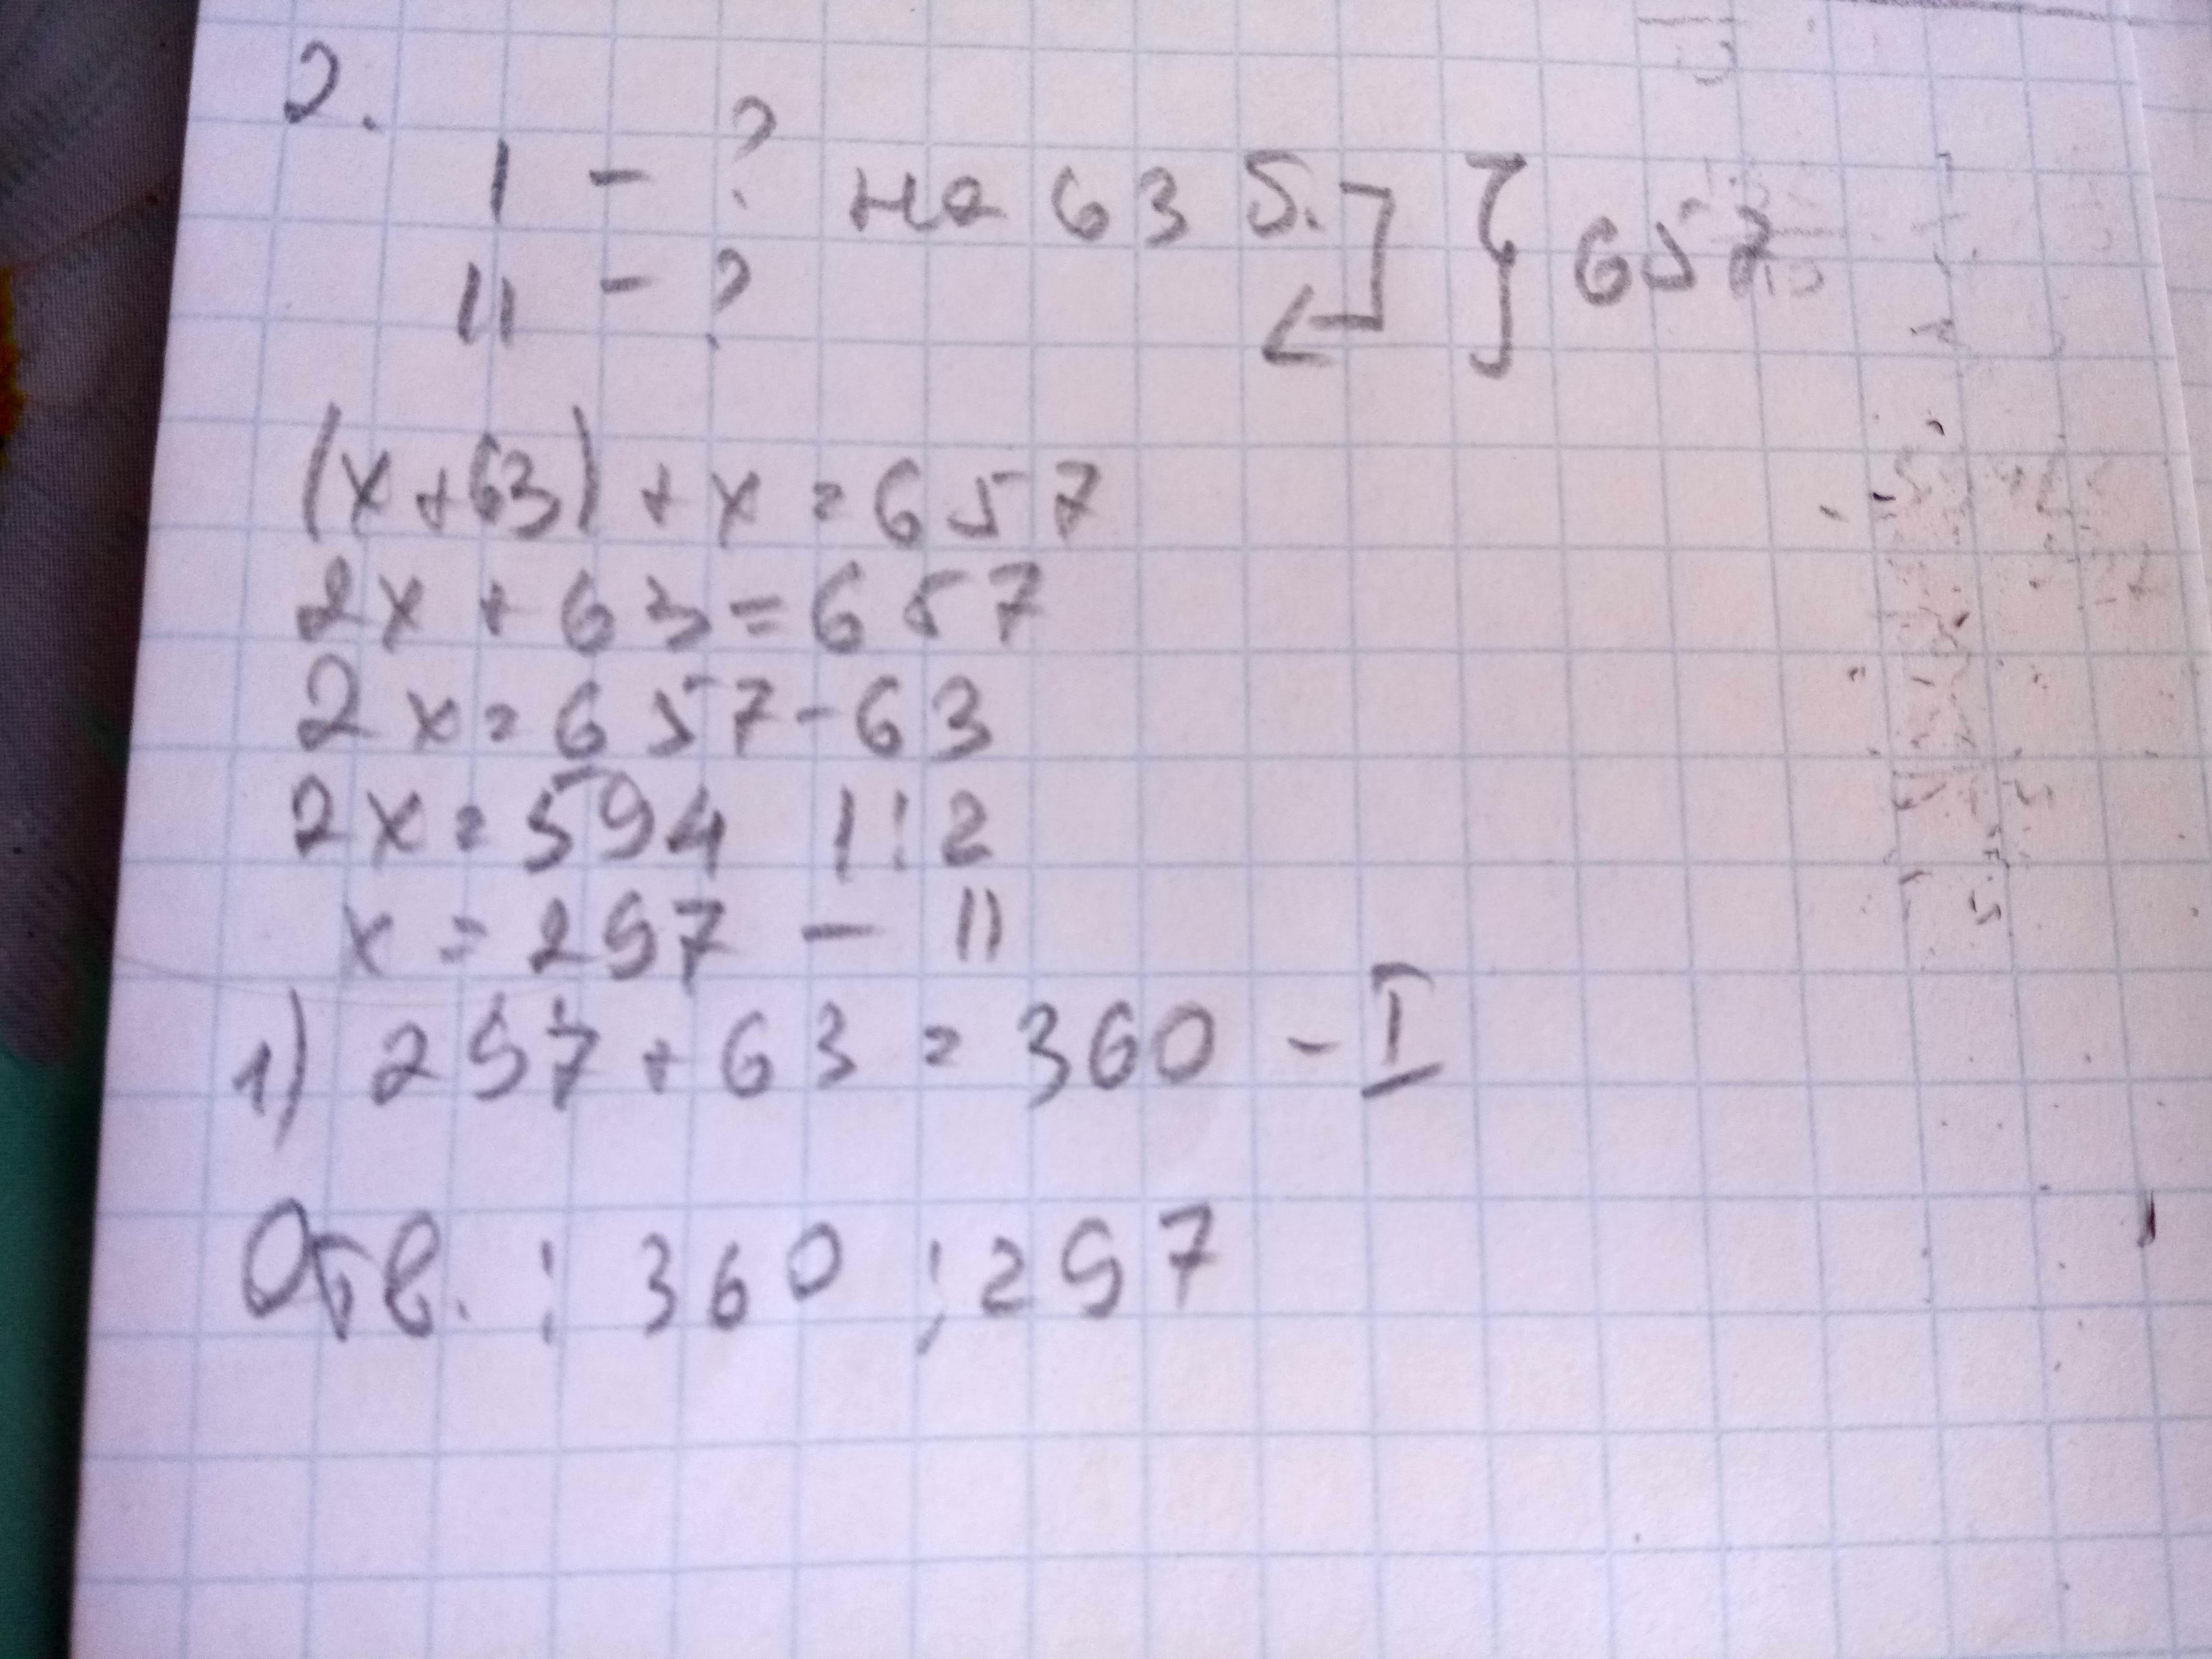 2.
I - ? на 63 б. } 657
II - ?
(x+63) + x = 657
2x + 63 = 657
2x = 657 - 63
2x = 594 | : 2
x = 297 - II
1) 297 + 63 = 360 - I
Отв. : 360 ; 297